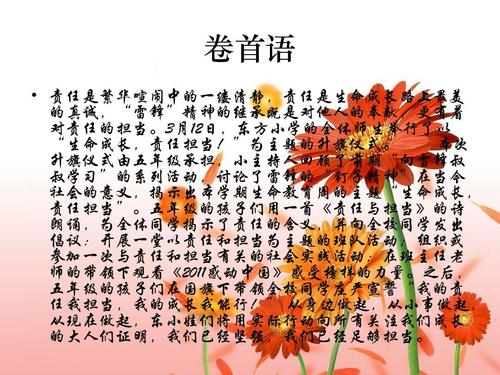 卷首语
• 责任是繁华喧闹中的一缕清静，责任是生命成长路上最美
的真诚，“雷锋”精神的继承既是对他人的奉献，更有着
对责任的担当。3月12日，东方小学的全体师生举行了以
“生命成长，责任担当！”为主题的升旗仪式，本次
升旗仪式由五年级承担，小主持人回顾了前期“向雷锋叔
叔学习”的系列活动，讨论了雷锋的“钉子精神”在当今
社会的意义，揭示出本学期生命教育周的主题“生命成长，
责任担当”。五年级的孩子们用一首《责任与担当》的诗
朗诵，为全体同学揭示了责任的含义，并向全校同学发出
倡议：开展一堂以责任和担当为主题的班队活动；组织或
参加一次与责任和担当有关的社会实践活动；在班主任老
师的带领下观看《2011感动中国》感受榜样的力量。之后，
五年级的孩子们在国旗下带领全校同学庄严宣誓“我的责
任我担当，我的成长我能行”，从身边做起，从小事做起
从现在做起，东小娃们将用实际行动向所有关注我们成长
的大人们证明，我们已经坚强，我们已经足够担当。